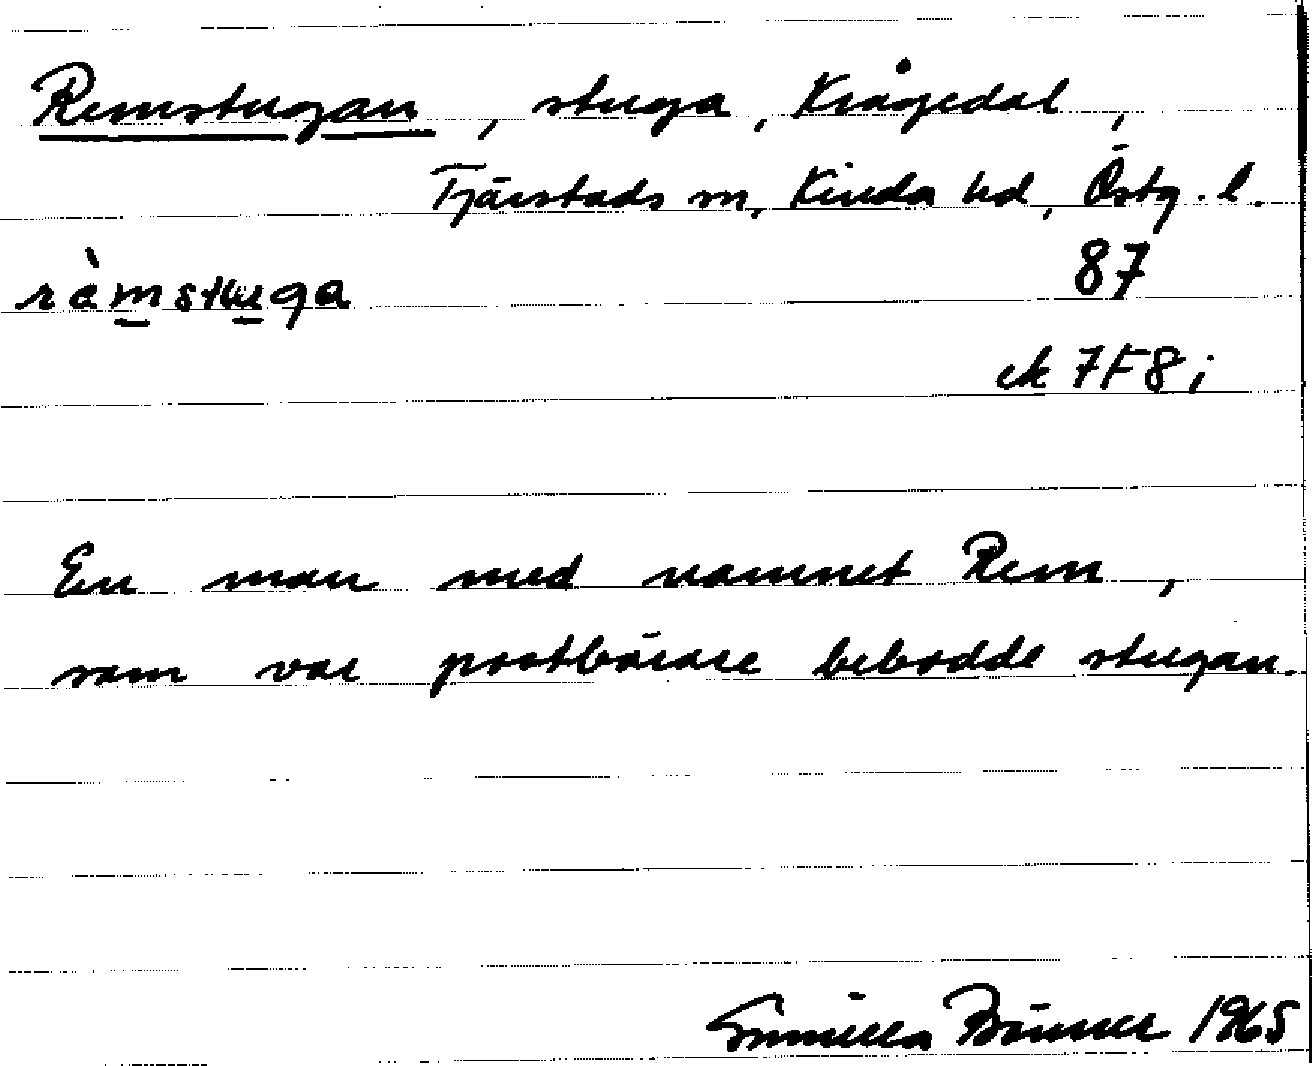 Remstugan, stuga, Krågedal,
Tjärstads sn, Kinda hd, Östg. l.
rèmstuga 87
ek 7F8i
En man med namnet Rem,
som var postbärare bebodde stugan.
1965